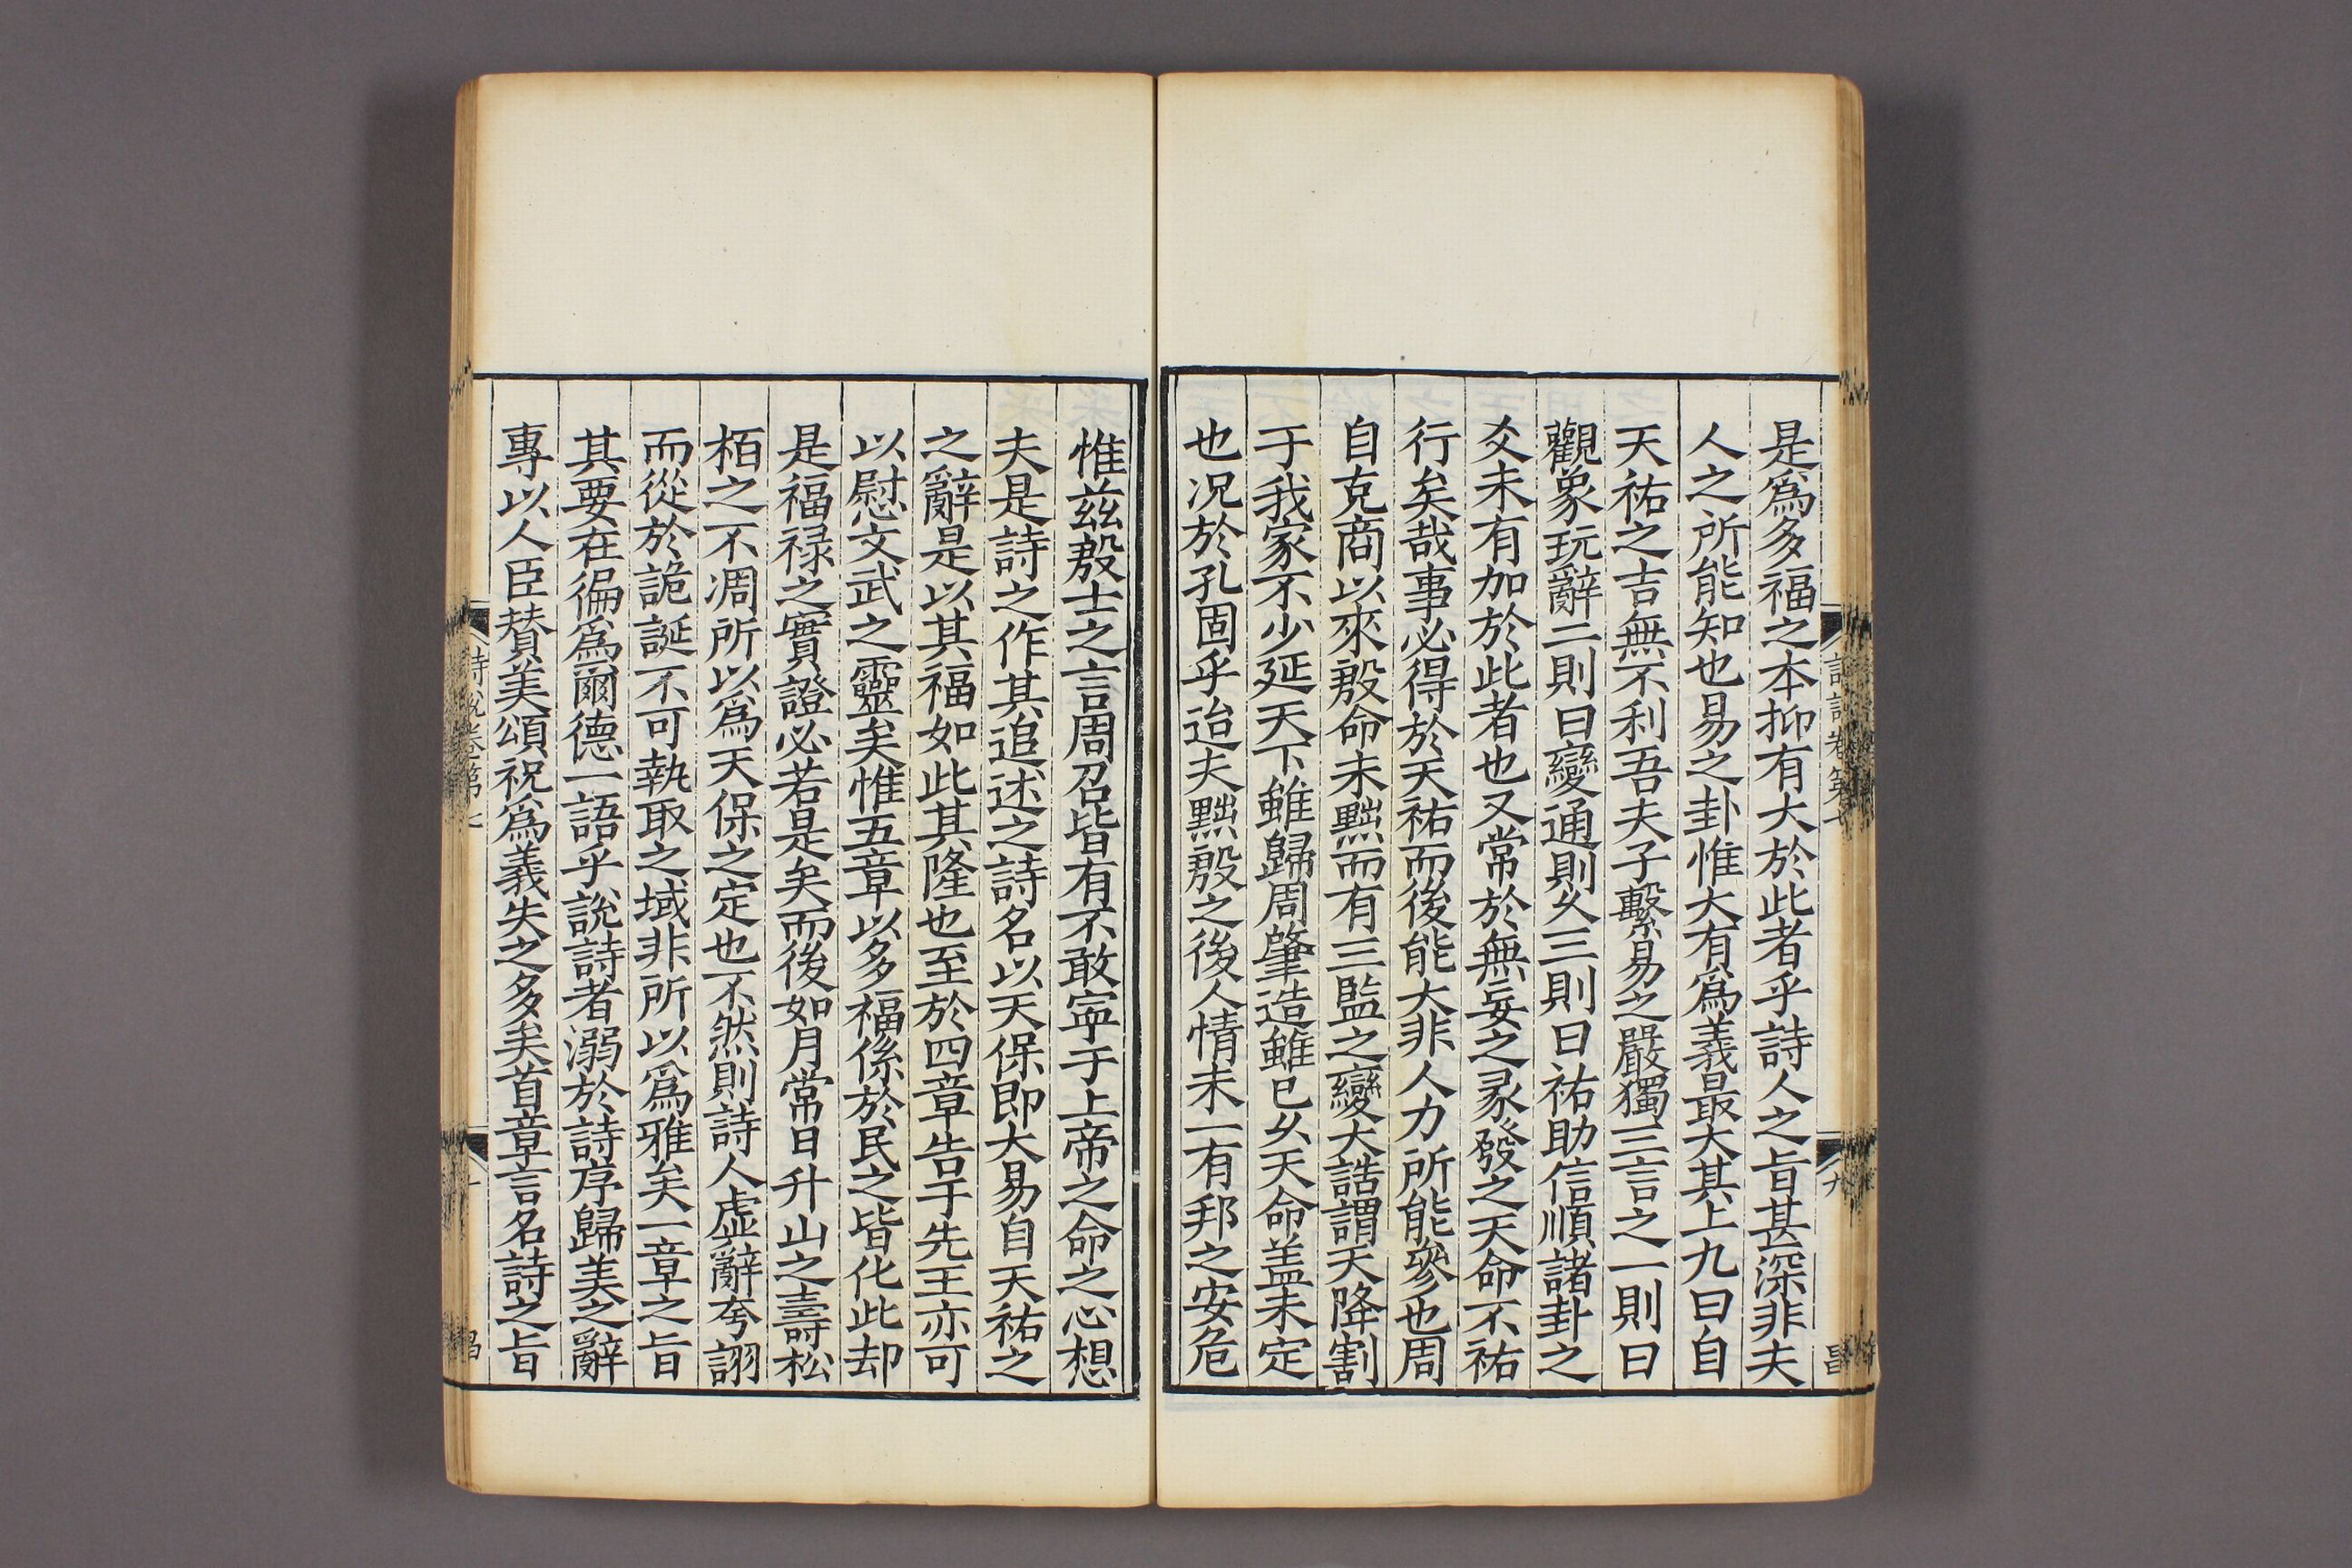 是爲多福之本抑有大於此者乎詩人之旨甚深非夫
人之所能知也易之卦惟大有爲義最大其上九曰自
天祐之吉無不利吾夫子繫易之嚴獨三言之一則曰
觀象玩辭二則曰變通則久三則曰祐助信順諸卦之
爻未有加於此者也又常於無妄之彖發之天命不祐
行矣哉事必得於天祐而後能大非人力所能參也周
自克商以來殷命未黜而有三監之變大誥謂天降割
于我家不少延天下雖歸周肇造雖已久天命盖未定
也况於孔固乎迨夫黜殷之後人情未一有邦之安危
惟兹殷士之言周召皆有不敢寜于上帝之命之心想
夫是詩之作其追述之詩名以天保即大易自天祐之
之辭是以其福如此其隆也至於四章告于先王亦可
以慰文武之靈矣惟五章以多福係於民之皆化此却
是福禄之實證必若是矣而後如月常日升山之壽松
栢之不凋所以爲天保之定也不然則詩人虚辭夸詡
而從於詭誕不可執取之域非所以爲雅矣一章之旨
其要在徧爲爾德一語乎說詩者溺於詩序歸美之辭
專以人臣賛美頌祝爲義失之多矣首章言名詩之旨
詩說卷第七
九
昌